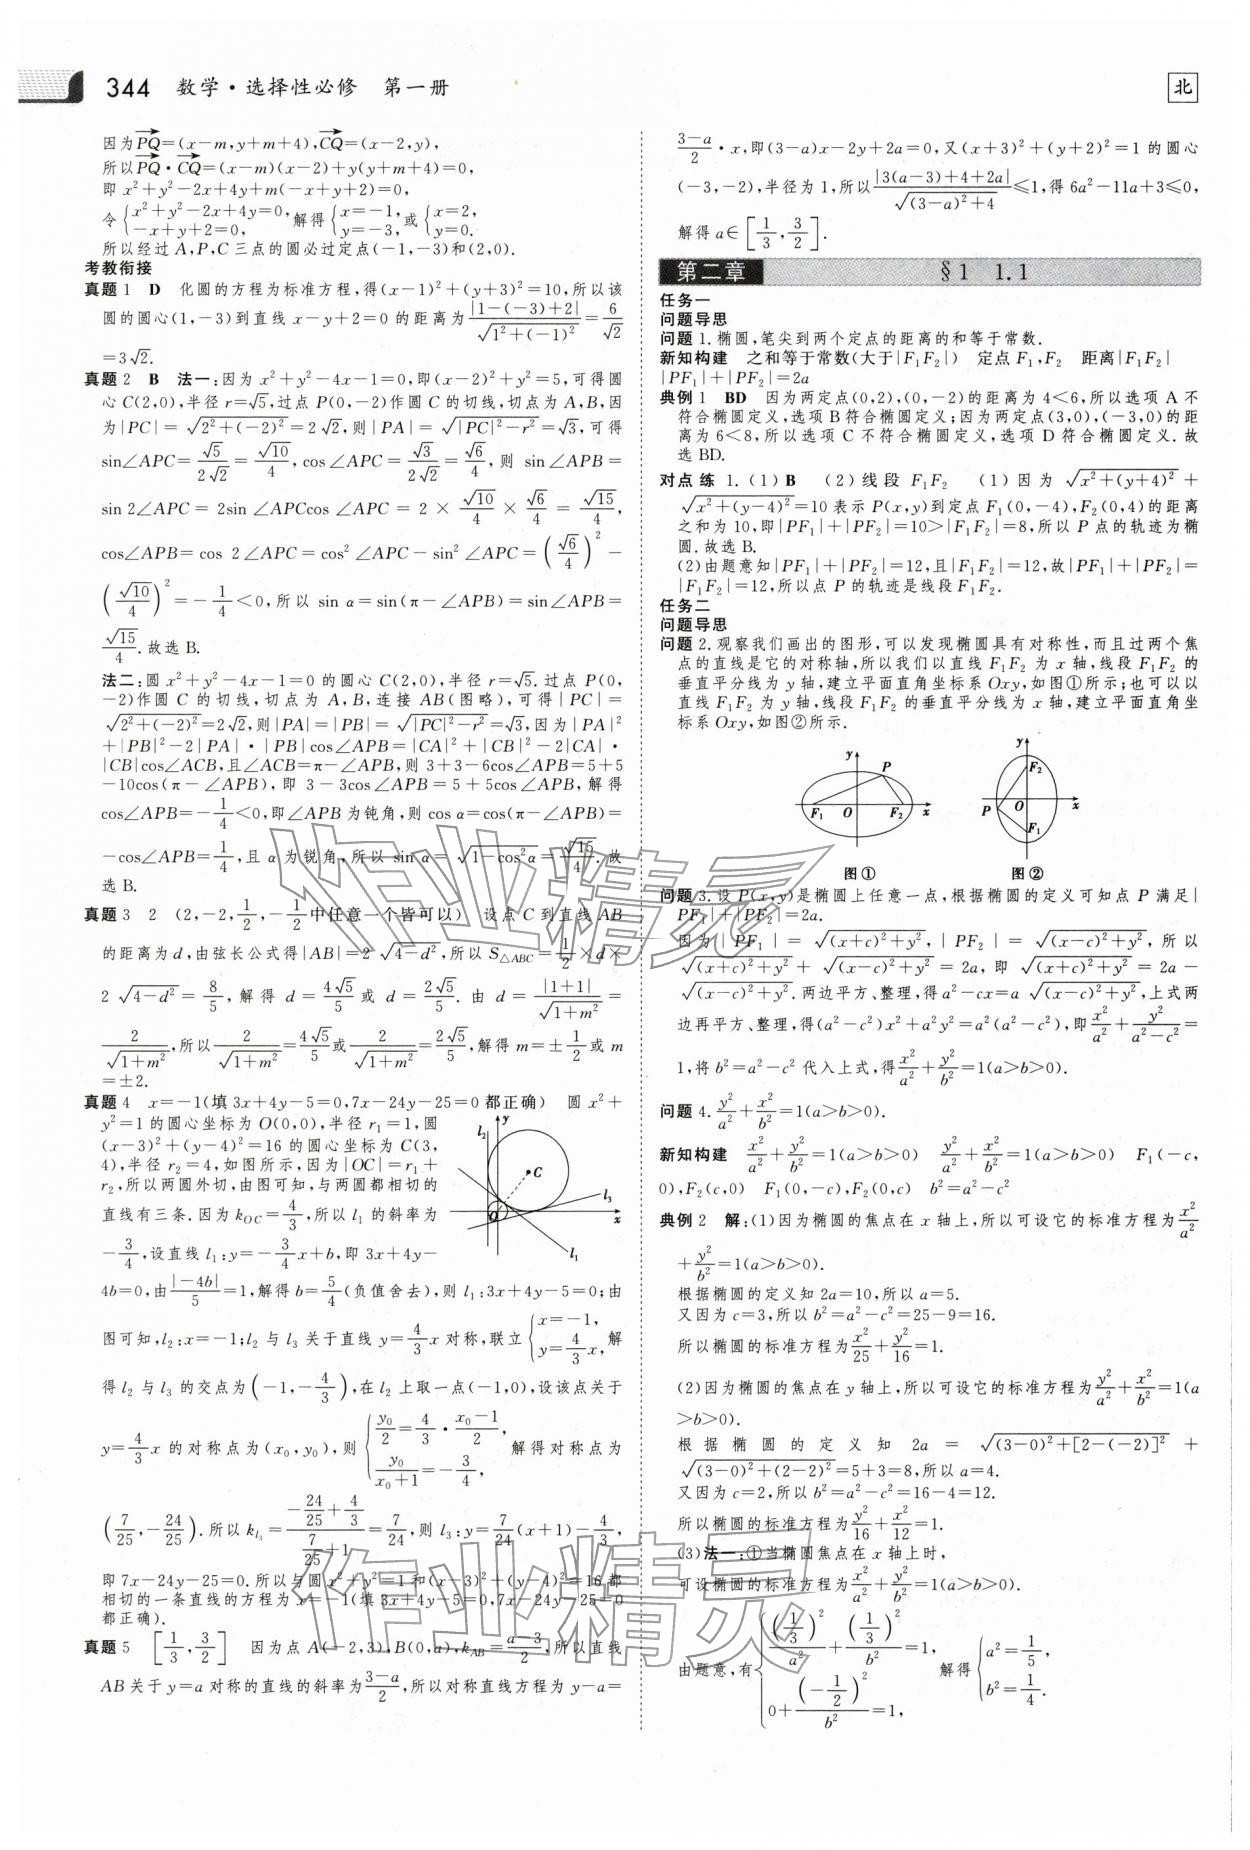 344 数学·选择性必修 第一册
北
因为PQ→=(x-m,y+m+4),CQ→=(x-2,y),
所以PQ→·CQ→=(x-m)(x-2)+y(y+m+4)=0,
即 x²+y²-2x+4y+m(-x+y+2)=0,
令{x²+y²-2x+4y=0, -x+y+2=0,解得{x=-1, y=-3,或{x=2, y=0.
所以经过 A,P,C 三点的圆必过定点(-1,-3)和(2,0).
考教衔接
真题1 D 化圆的方程为标准方程,得(x-1)²+(y+3)²=10,所以该
圆的圆心(1,-3)到直线 x-y+2=0 的距离为|1-(-3)+2|/√(1²+(-1)²)=6/√2
=3√2.
真题2 B 法一:因为 x²+y²-4x-1=0,即(x-2)²+y²=5,可得圆
心 C(2,0),半径 r=√5,过点 P(0,-2)作圆 C 的切线,切点为 A,B,因
为|PC|=√(2²+(-2)²)=2√2,则|PA|=√(|PC|²-r²)=√3,可得
sin∠APC=√5/(2√2)=√10/4,cos∠APC=√3/(2√2)=√6/4,则 sin∠APB=
sin 2∠APC=2sin ∠APCcos ∠APC=2×√10/4×√6/4=√15/4,
cos∠APB=cos 2∠APC=cos²∠APC-sin²∠APC=(√6/4)²-
(√10/4)²=-1/4<0,所以 sin α=sin(π-∠APB)=sin∠APB=
√15/4.故选 B.
法二:圆 x²+y²-4x-1=0 的圆心 C(2,0),半径 r=√5.过点 P(0,
-2)作圆 C 的切线,切点为 A,B,连接 AB(图略),可得|PC|=
√(2²+(-2)²)=2√2,则|PA|=|PB|=√(|PC|²-r²)=√3,因为|PA|²
+|PB|²-2|PA|·|PB|cos∠APB=|CA|²+|CB|²-2|CA|·
|CB|cos∠ACB,且∠ACB=π-∠APB,则 3+3-6cos∠APB=5+5
-10cos(π-∠APB),即 3-3cos∠APB=5+5cos∠APB,解得
cos∠APB=-1/4<0,即∠APB为钝角,则 cos α=cos(π-∠APB)=
-cos∠APB=1/4,且 α 为锐角,所以 sin α=√(1-cos²α)=√15/4.故
选 B.
真题3 2 (2,-2,1/2,-1/2中任意一个皆可以) 设点 C 到直线 AB
的距离为 d,由弦长公式得|AB|=2√(4-d²),所以 S△ABC=1/2×d×
2√(4-d²)=8/5,解得 d=4√5/5或 d=2√5/5.由 d=|1+1|/√(1+m²)=
2/√(1+m²),所以2/√(1+m²)=4√5/5或2/√(1+m²)=2√5/5,解得 m=±1/2或 m
=±2.
真题4 x=-1(填 3x+4y-5=0,7x-24y-25=0 都正确) 圆 x²+
y²=1 的圆心坐标为 O(0,0),半径 r₁=1,圆
(x-3)²+(y-4)²=16 的圆心坐标为 C(3,
4),半径 r₂=4,如图所示,因为|OC|=r₁+
r₂,所以两圆外切,由图可知,与两圆都相切的
直线有三条.因为 kOC=4/3,所以 l₁ 的斜率为
-3/4,设直线 l₁:y=-3/4x+b,即 3x+4y-
l₂ y C l₃ O x l₁
4b=0,由|-4b|/5=1,解得 b=5/4(负值舍去),则 l₁:3x+4y-5=0;由
图可知,l₂:x=-1;l₂ 与 l₃ 关于直线 y=4/3x 对称,联立{x=-1, y=4/3x,解
得 l₂ 与 l₃ 的交点为(-1,-4/3),在 l₂ 上取一点(-1,0),设该点关于
y=4/3x 的对称点为(x₀,y₀),则{y₀/2=4/3·(x₀-1)/2, y₀/(x₀+1)=-3/4,解得对称点为
(7/25,-24/25).所以 kl₃=(-24/25+4/3)/(7/25+1)=7/24,则 l₃:y=7/24(x+1)-4/3,
即 7x-24y-25=0.所以与圆 x²+y²=1 和(x-3)²+(y-4)²=16 都
相切的一条直线的方程为 x=-1(填 3x+4y-5=0,7x-24y-25=0
都正确).
真题5 [1/3,3/2] 因为点 A(-2,3),B(0,a),kAB=(a-3)/2,所以直线
AB关于 y=a 对称的直线的斜率为(3-a)/2,所以对称直线方程为 y-a=
(3-a)/2·x,即(3-a)x-2y+2a=0,又(x+3)²+(y+2)²=1 的圆心
(-3,-2),半径为 1,所以|3(a-3)+4+2a|/√((3-a)²+4)≤1,得 6a²-11a+3≤0,
解得 a∈[1/3,3/2].
第二章 §1 1.1
任务一
问题导思
问题1.椭圆,笔尖到两个定点的距离的和等于常数.
新知构建 之和等于常数(大于|F₁F₂|) 定点 F₁,F₂ 距离|F₁F₂|
|PF₁|+|PF₂|=2a
典例1 BD 因为两定点(0,2),(0,-2)的距离为 4<6,所以选项 A 不
符合椭圆定义,选项 B 符合椭圆定义;因为两定点(3,0),(-3,0)的距
离为 6<8,所以选项 C 不符合椭圆定义,选项 D 符合椭圆定义.故
选 BD.
对点练 1.(1)B (2)线段 F₁F₂ (1)因为 √(x²+(y+4)²)+
√(x²+(y-4)²)=10 表示 P(x,y)到定点 F₁(0,-4),F₂(0,4)的距离
之和为 10,即|PF₁|+|PF₂|=10>|F₁F₂|=8,所以 P 点的轨迹为椭
圆.故选 B.
(2)由题意知|PF₁|+|PF₂|=12,且|F₁F₂|=12,故|PF₁|+|PF₂|=
|F₁F₂|=12,所以点 P 的轨迹是线段 F₁F₂.
任务二
问题导思
问题2.观察我们画出的图形,可以发现椭圆具有对称性,而且过两个焦
点的直线是它的对称轴,所以我们以直线 F₁F₂ 为 x 轴,线段 F₁F₂ 的
垂直平分线为 y 轴,建立平面直角坐标系 Oxy,如图①所示;也可以以
直线 F₁F₂ 为 y 轴,线段 F₁F₂ 的垂直平分线为 x 轴,建立平面直角坐
标系 Oxy,如图②所示.
y P F₁ O F₂ x
y F₂ P O x F₁
图① 图②
问题3.设 P(x,y)是椭圆上任意一点,根据椭圆的定义可知点 P 满足|
PF₁|+|PF₂|=2a.
因为|PF₁|=√((x+c)²+y²),|PF₂|=√((x-c)²+y²),所以
√((x+c)²+y²)+√((x-c)²+y²)=2a,即√((x+c)²+y²)=2a-
√((x-c)²+y²).两边平方、整理,得 a²-cx=a√((x-c)²+y²),上式两
边再平方、整理,得(a²-c²)x²+a²y²=a²(a²-c²),即x²/a²+y²/(a²-c²)=
1,将 b²=a²-c² 代入上式,得x²/a²+y²/b²=1(a>b>0).
问题4.y²/a²+x²/b²=1(a>b>0).
新知构建 x²/a²+y²/b²=1(a>b>0) y²/a²+x²/b²=1(a>b>0) F₁(-c,
0),F₂(c,0) F₁(0,-c),F₂(0,c) b²=a²-c²
典例2 解:(1)因为椭圆的焦点在 x 轴上,所以可设它的标准方程为x²/a²
+y²/b²=1(a>b>0).
根据椭圆的定义知 2a=10,所以 a=5.
又因为 c=3,所以 b²=a²-c²=25-9=16.
所以椭圆的标准方程为x²/25+y²/16=1.
(2)因为椭圆的焦点在 y 轴上,所以可设它的标准方程为y²/a²+x²/b²=1(a
>b>0).
根据椭圆的定义知 2a=√((3-0)²+[2-(-2)]²)+
√((3-0)²+(2-2)²)=5+3=8,所以 a=4.
又因为 c=2,所以 b²=a²-c²=16-4=12.
所以椭圆的标准方程为y²/16+x²/12=1.
(3)法一:①当椭圆焦点在 x 轴上时,
可设椭圆的标准方程为x²/a²+y²/b²=1(a>b>0).
由题意,有{(1/3)²/a²+(1/3)²/b²=1, 0+(-1/2)²/b²=1,解得{a²=1/5, b²=1/4.
作业精灵
作业精灵